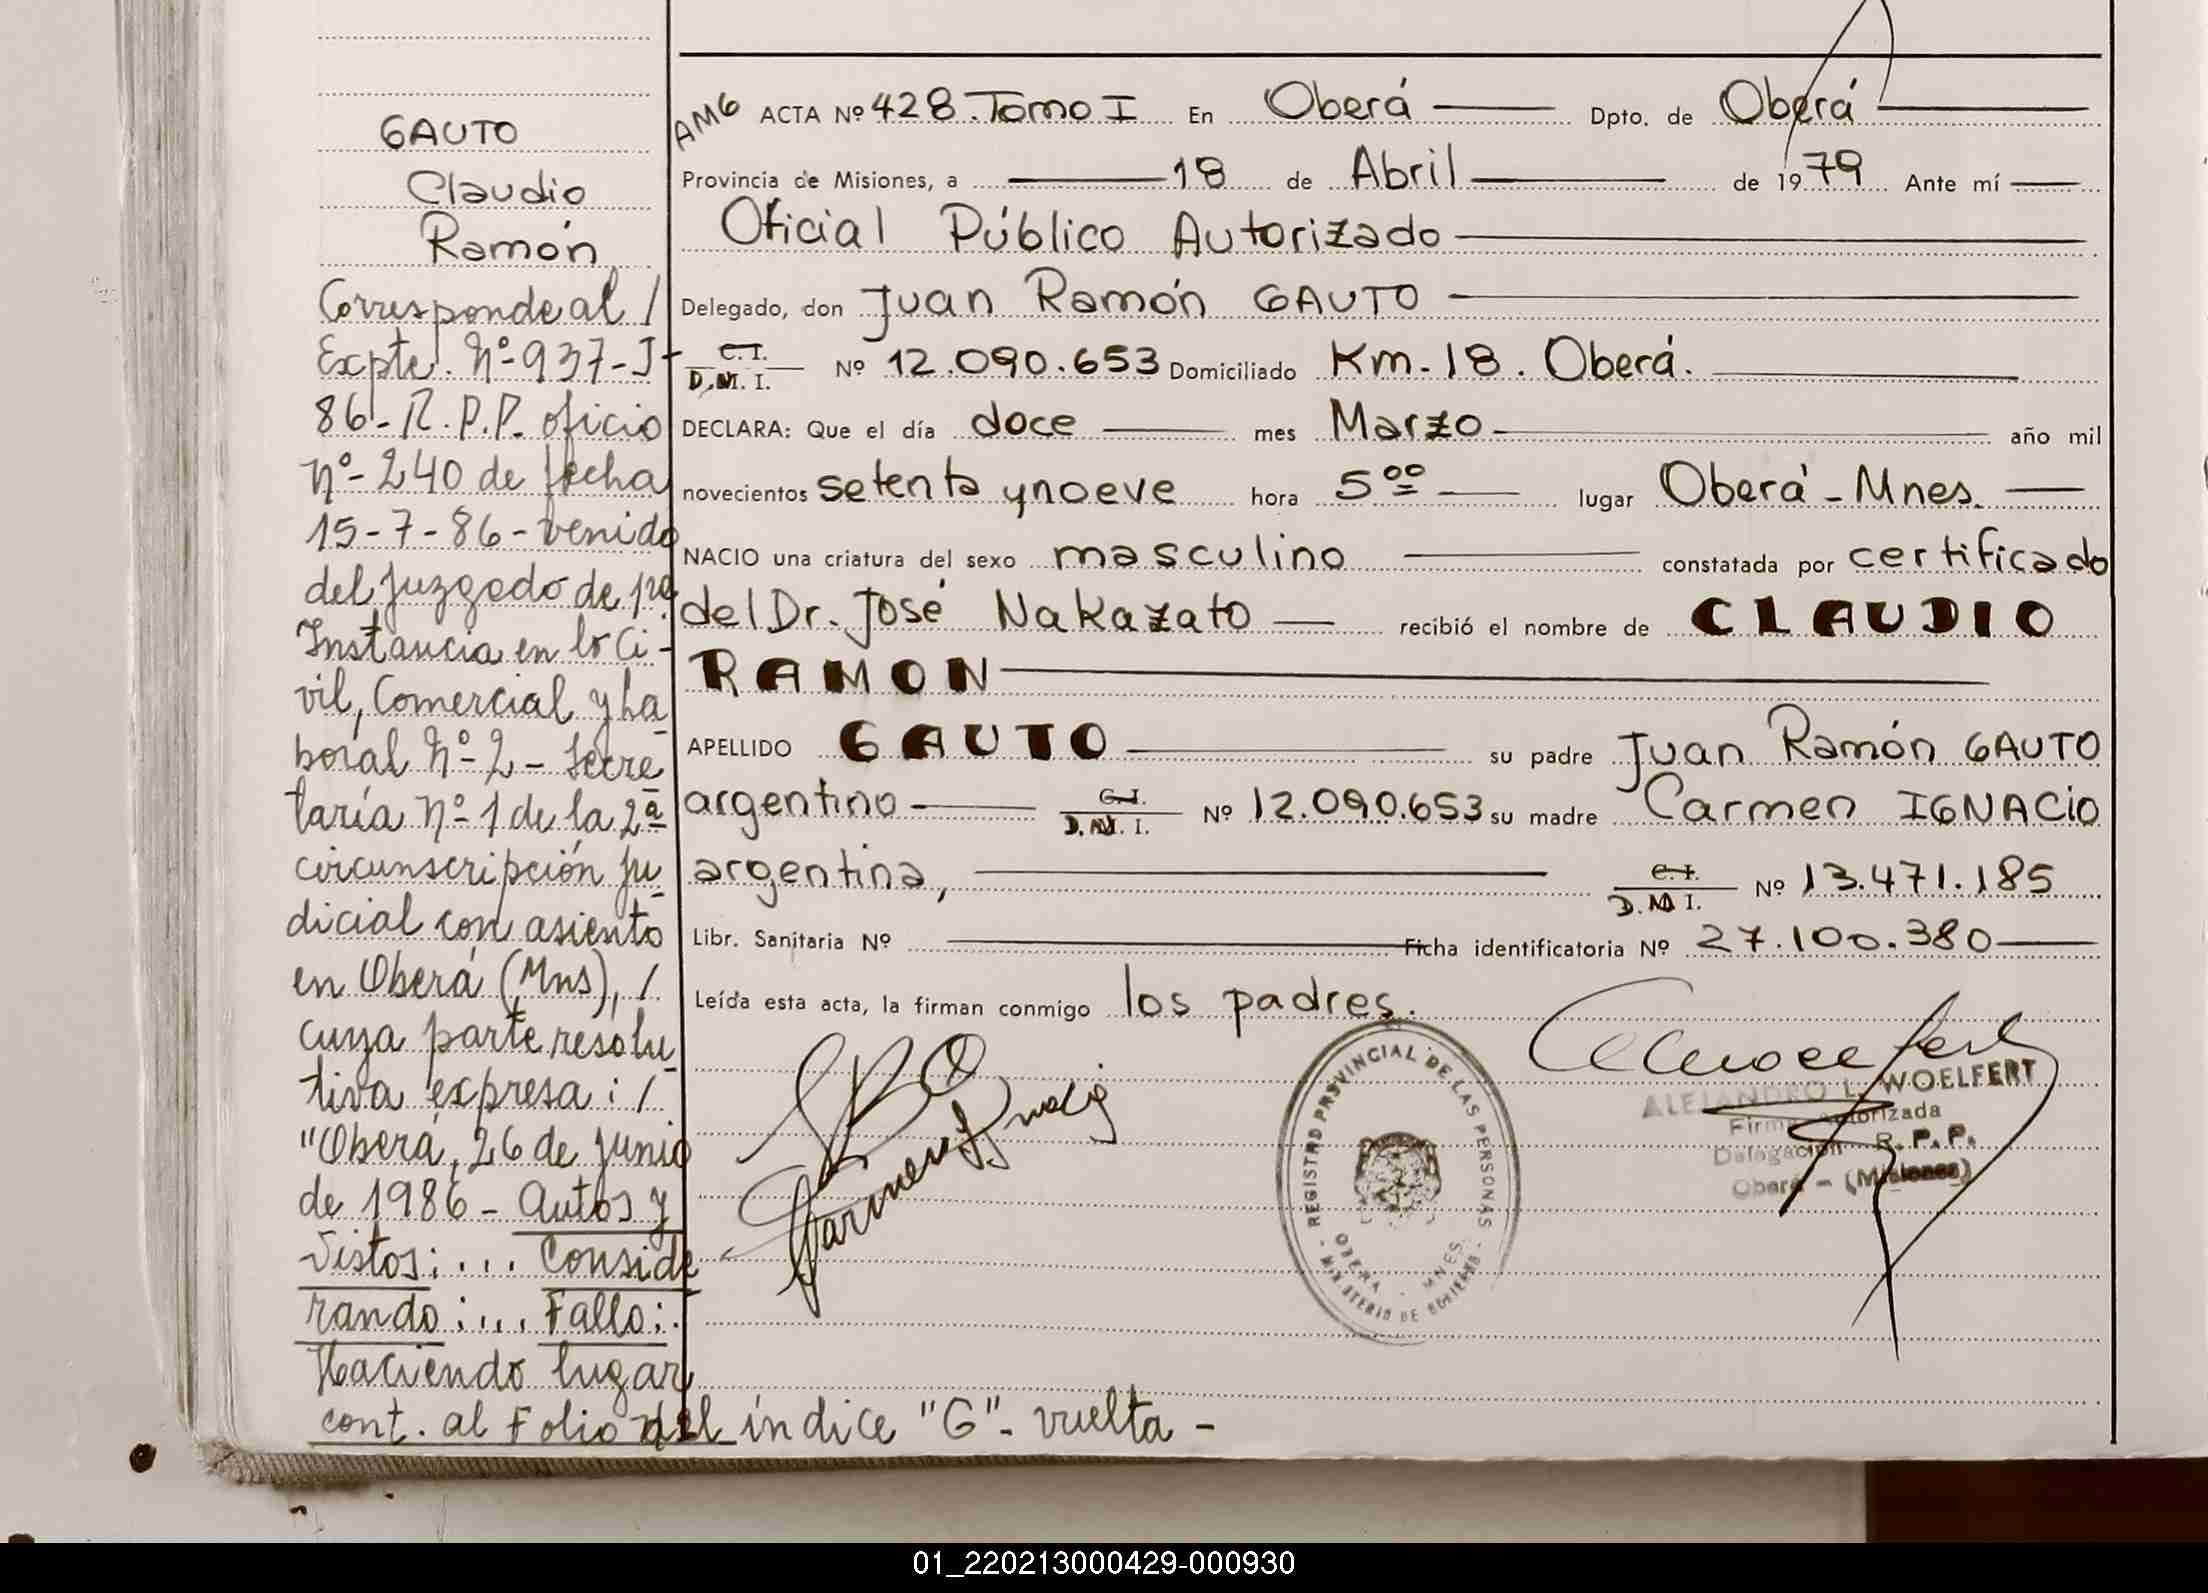 GAUTO
Claudio
Ramón
Corresponde al /
Expte. Nº-937-J-
86-R.P.P. oficio
Nº-240 de fecha
15-7-86-venido
del Juzgado de 1ra
Instancia en lo Ci-
vil, Comercial y La-
boral Nº-2-Secre-
taría Nº-1 de la 2ª
circunscripción Ju-
dicial con asiento
en Oberá (Mns), /
cuya parte resolu-
tiva expresa: /
"Oberá, 26 de junio
de 1986- Autos y
Vistos:... Conside-
rando:... Fallo:.
Haciendo lugar
cont. al Folio del índice "G"- vuelta-
AMG ACTA Nº 428. Tomo I En Oberá Dpto. de Oberá
Provincia de Misiones, a 18 de Abril de 1979 Ante mí
Oficial Público Autorizado
Delegado, don Juan Ramón GAUTO
C.I.
D.M.I. Nº 12.090.653 Domiciliado Km-18. Oberá.
DECLARA: Que el día doce mes Marzo año mil
novecientos setenta y nueve hora 5ºº lugar Oberá-Mnes.
NACIO una criatura del sexo masculino constatada por certificado
del Dr. José Nakazato recibió el nombre de CLAUDIO
RAMON
APELLIDO GAUTO su padre Juan Ramón GAUTO
argentino C.I.
D.M.I. Nº 12.090.653 su madre Carmen IGNACIO
argentina, C.I.
D.M.I. Nº 13.471.185
Libr. Sanitaria Nº Ficha identificatoria Nº 27.100.380
Leída esta acta, la firman conmigo los padres.
REGISTRO PROVINCIAL DE LAS PERSONAS
OBERA - MNES.
MINISTERIO DE GOBIERNO
ALEJANDRO L. WOELFERT
Firma Autorizada
Delegación R.P.P.
Oberá - (Misiones)
01_220213000429-000930